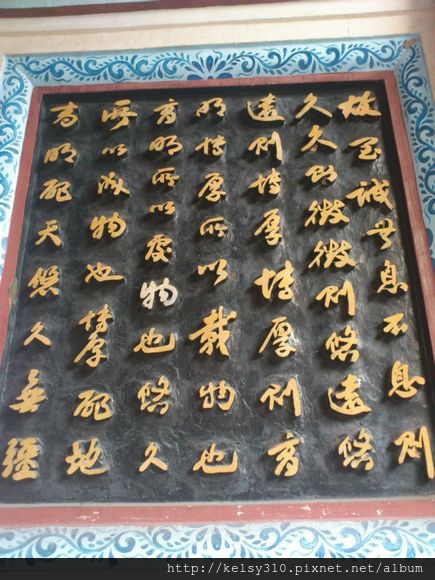 故至誠無息不息則
久久則徵徵則悠遠悠
遠則博厚博厚則高
明博厚所以載物也
高明所以覆物也悠久
所以成物也博厚配地
高明配天悠久無疆
http://kelsy310.pixnet.net/album